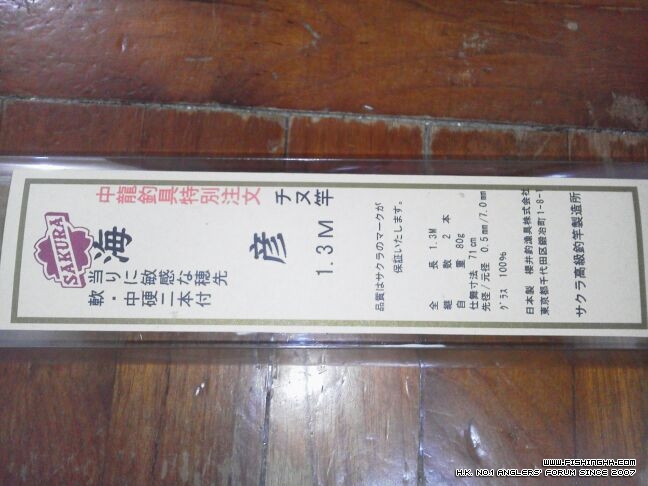 SAKURA
中龍釣具特別注文
チヌ竿
海彦
1.3M
当りに敏感な穂先
軟・中硬二本付
品質はサクラのマークが
保証いたします。
全長 1.3M
継数 2本
自重 80g
仕舞寸法 71cm
先径/元径 0.5mm/7.0mm
グラス 100%
日本製 櫻井釣漁具株式会社
東京都千代田区鍛冶町1-8-1
サクラ高級釣竿製造所
www.FISHINGHK.com
H.K. NO.1 ANGLERS' FORUM SINCE 2007